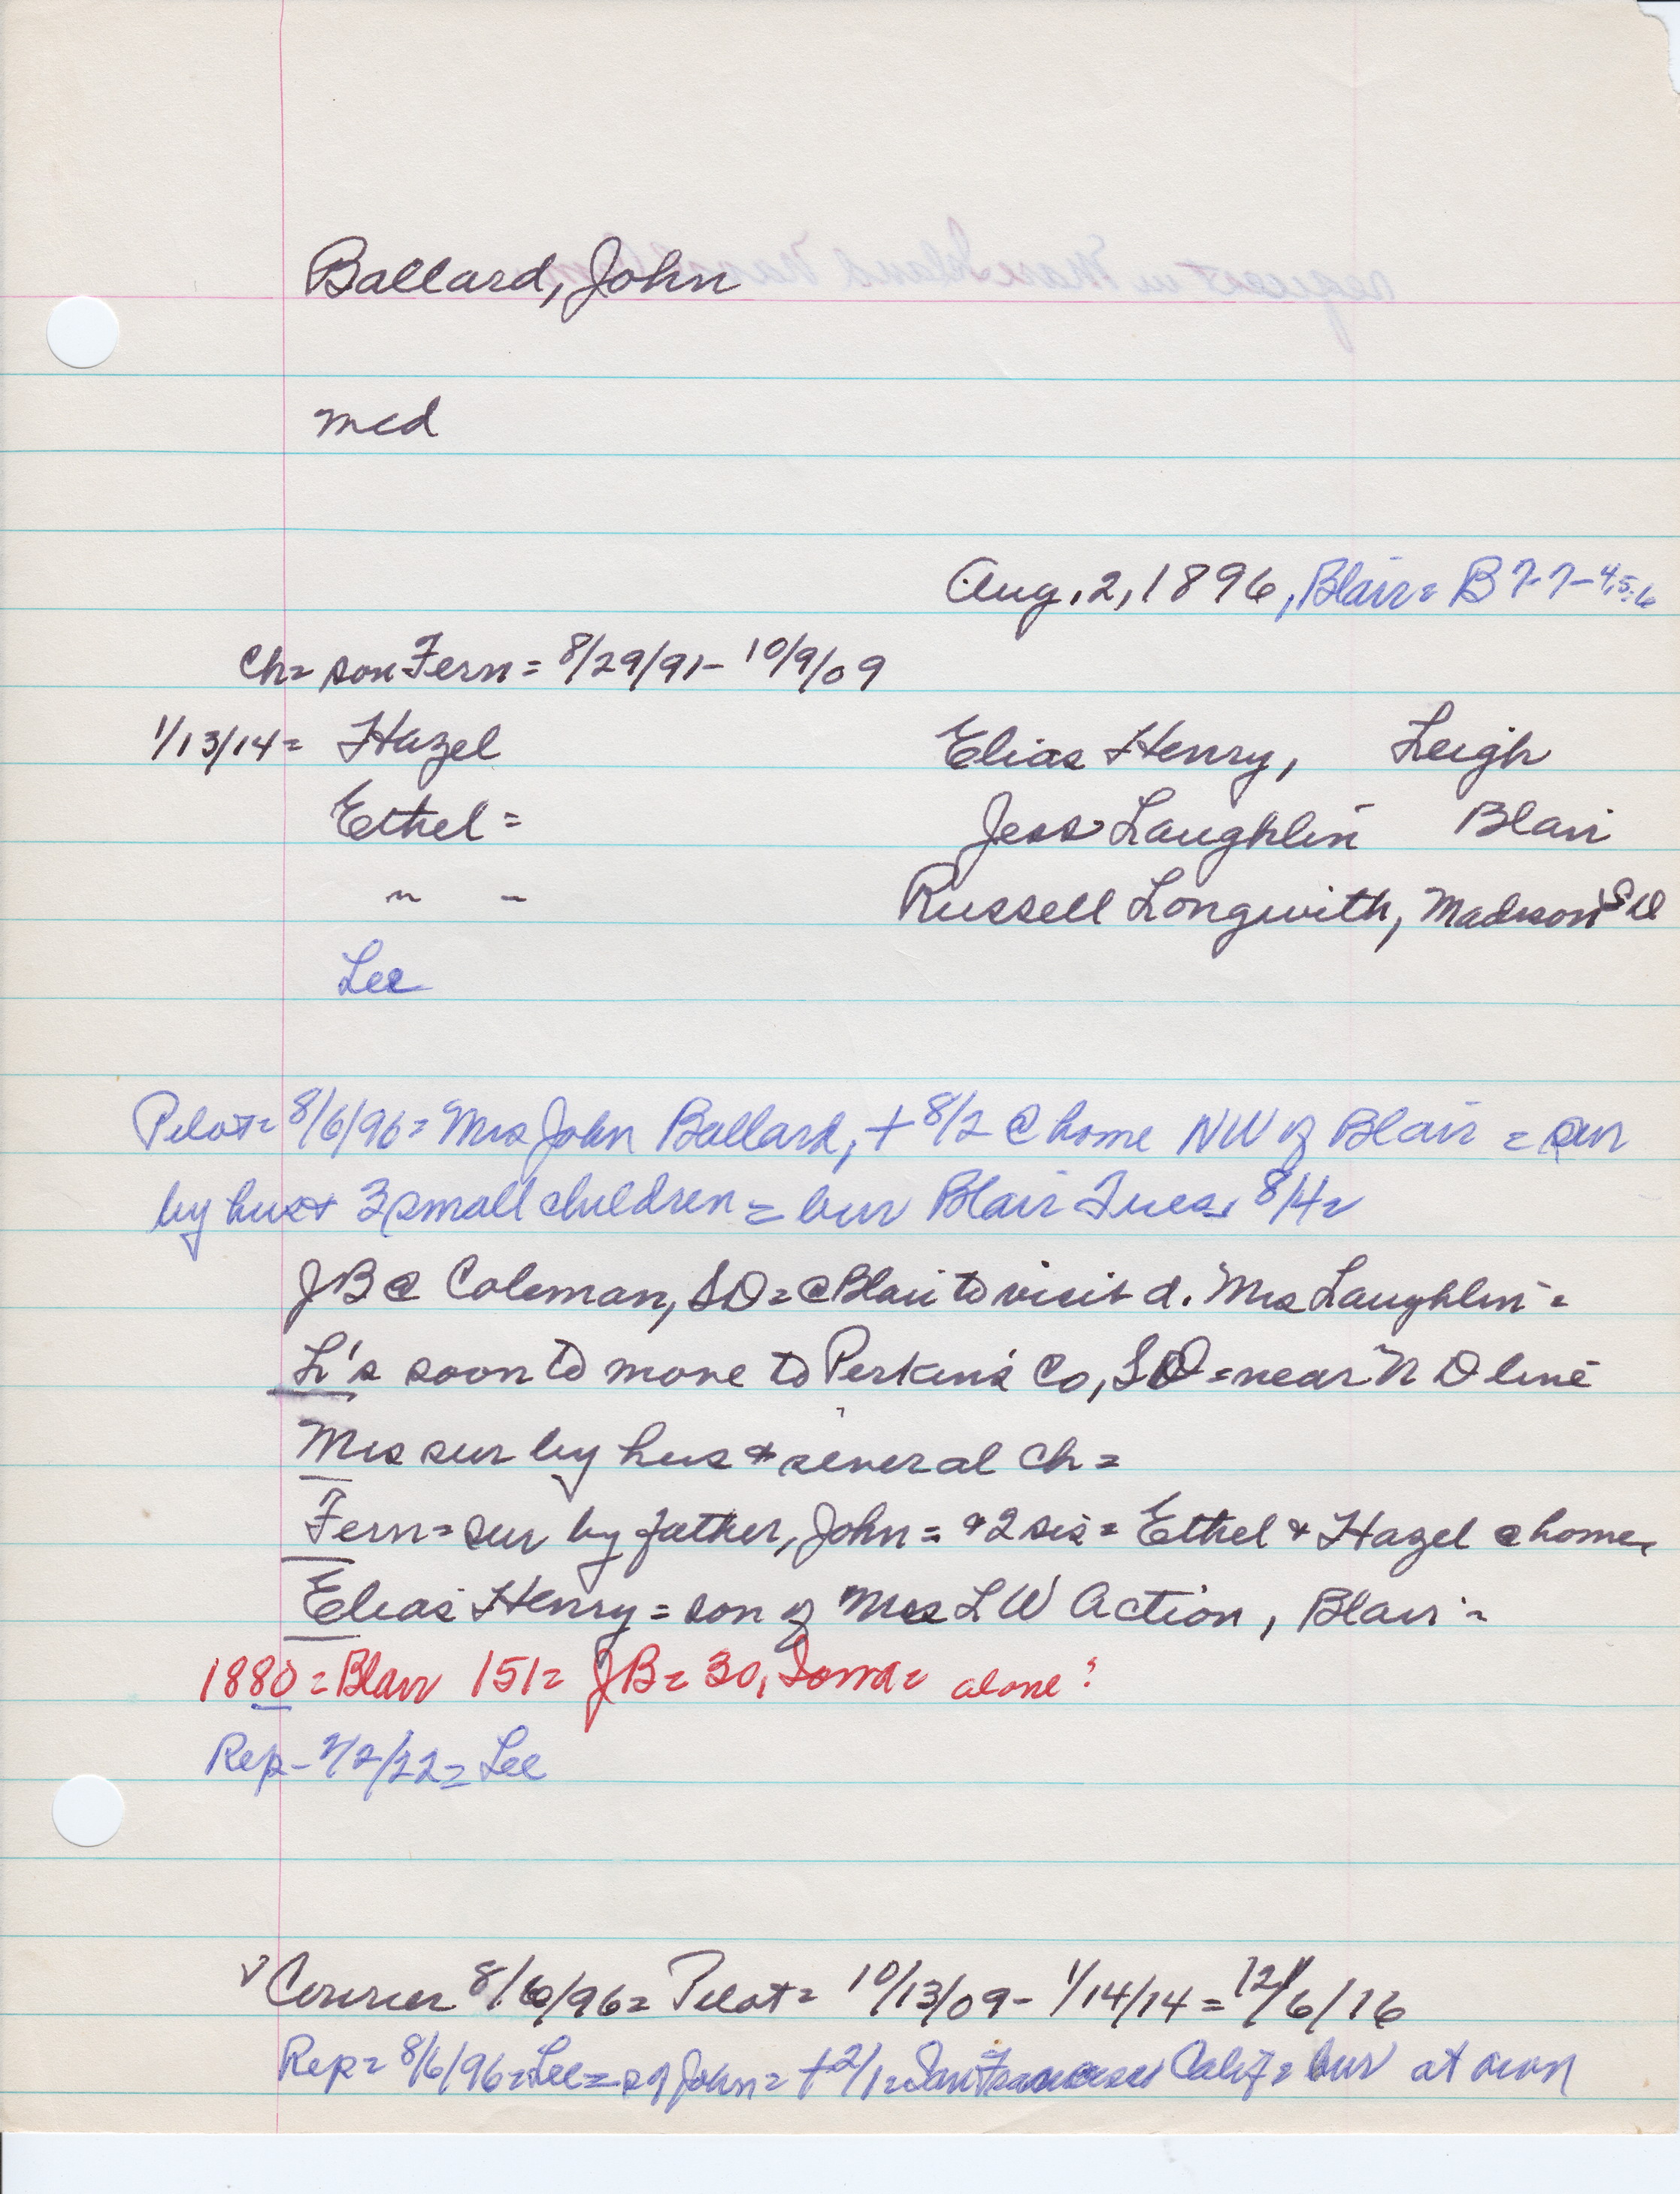 Ballard, John
mcd
Aug. 2, 1896, Blair = B 7-7-4,5,6
Ch = son Fern = 8/29/91 - 10/9/09
1/13/14 = Hazel Elias Henry, Leigh
Ethel = Jess Laughlin Blair
" - Russell Longwith, Madison
Lee
Pilot = 8/6/96 = Mrs John Ballard, + 8/2 @ home NW of Blair = sur
by hus & 3 small children = bur Blair Tues. 8/4 =
JB @ Coleman, SD = @ Blair to visit d. Mrs Laughlin =
L's soon to move to Perkins Co, SD = near N D line
Mrs sur by hus & several ch =
Fern = sur by father, John = & 2 sis = Ethel & Hazel @ home
Elias Henry = son of Mrs L W Action, Blair =
1880 = Blair 151 = JB = 30, = alone?
Rep - 2/2/22 = Lee
√ Courier 8/6/96 = Pilot = 10/13/09 - 1/14/14 = 12/6/16
Rep = 8/6/96 = Lee = s of John = + 2/1 = San Francisco Calif = bur at own